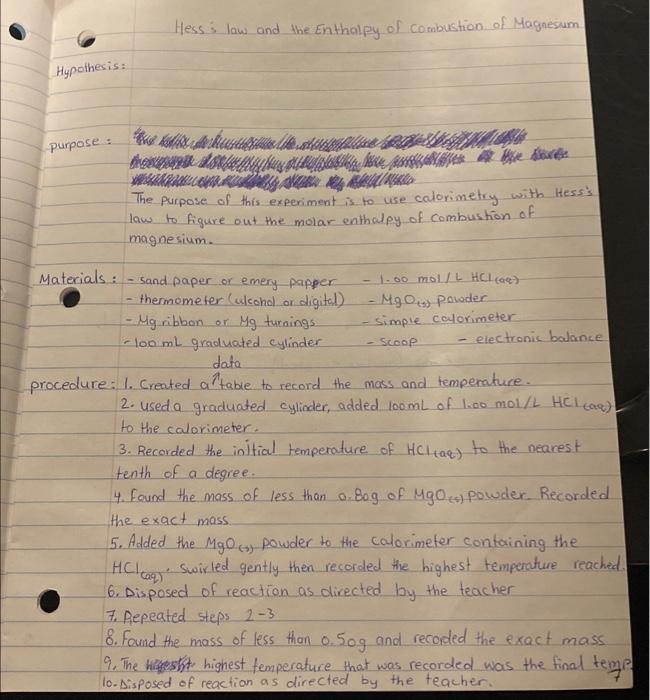 Hess's law and the Enthalpy of Combustion of Magnesium
Hypothesis:
purpose:
The purpose of this experiment is to use calorimetry with Hess's
law to figure out the molar enthalpy of combustion of
magnesium.
Materials: - sand paper or emery papper - 1.00 mol/L HCl(aq)
- thermometer (alcohol or digital) - MgO(s) powder
- Mg ribbon or Mg turnings - simple calorimeter
- 100 mL graduated cylinder - scoop - electronic balance
data
procedure: 1. Created a ↑ table to record the mass and temperature.
2. used a graduated cylinder, added 100mL of 1.00 mol/L HCl(aq)
to the calorimeter.
3. Recorded the initial temperature of HCl(aq) to the nearest
tenth of a degree.
4. Found the mass of less than 0.80g of MgO(s) powder. Recorded
the exact mass
5. Added the MgO(s) powder to the calorimeter containing the
HCl(aq). swirled gently then recorded the highest temperature reached.
6. Disposed of reaction as directed by the teacher
7. Repeated steps 2-3
8. Found the mass of less than 0.50g and recorded the exact mass
9. The highest temperature that was recorded was the final temp
10. Disposed of reaction as directed by the teacher. 7